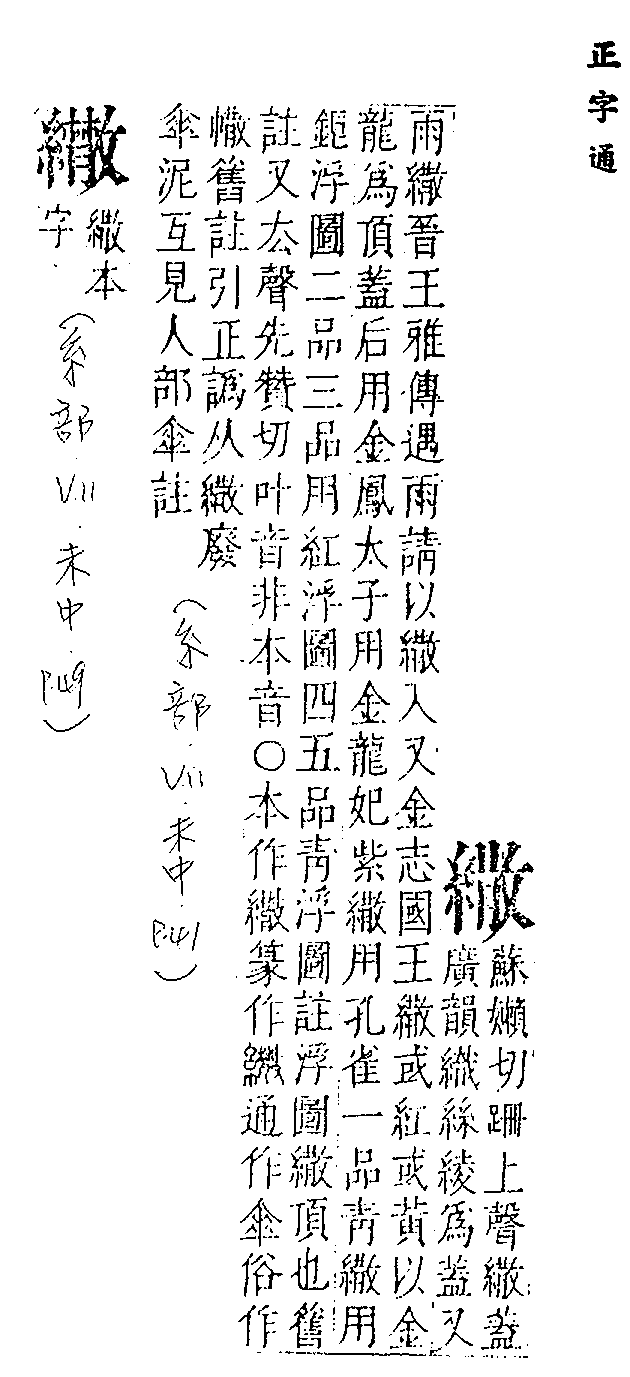 正字通
繖
蘇嬾切跚上聲繖蓋
廣韻織絲綾爲蓋又
雨繖晉王雅傳遇雨請以繖入又金志國王繖或紅或黃以金
龍爲頂蓋后用金鳳太子用金龍妃紫繖用孔雀一品靑繖用
銀浮圖二品三品用紅浮圖四五品靑浮圖註浮圖繖頂也舊
註又厺聲先贊切叶音非本音○本作繖篆作通作傘俗作
舊註引正譌从繖廢
傘泥互見人部傘註
(糸部.VII.未中.P.41)
繖本
字.
(糸部.VII.未中.P.49)